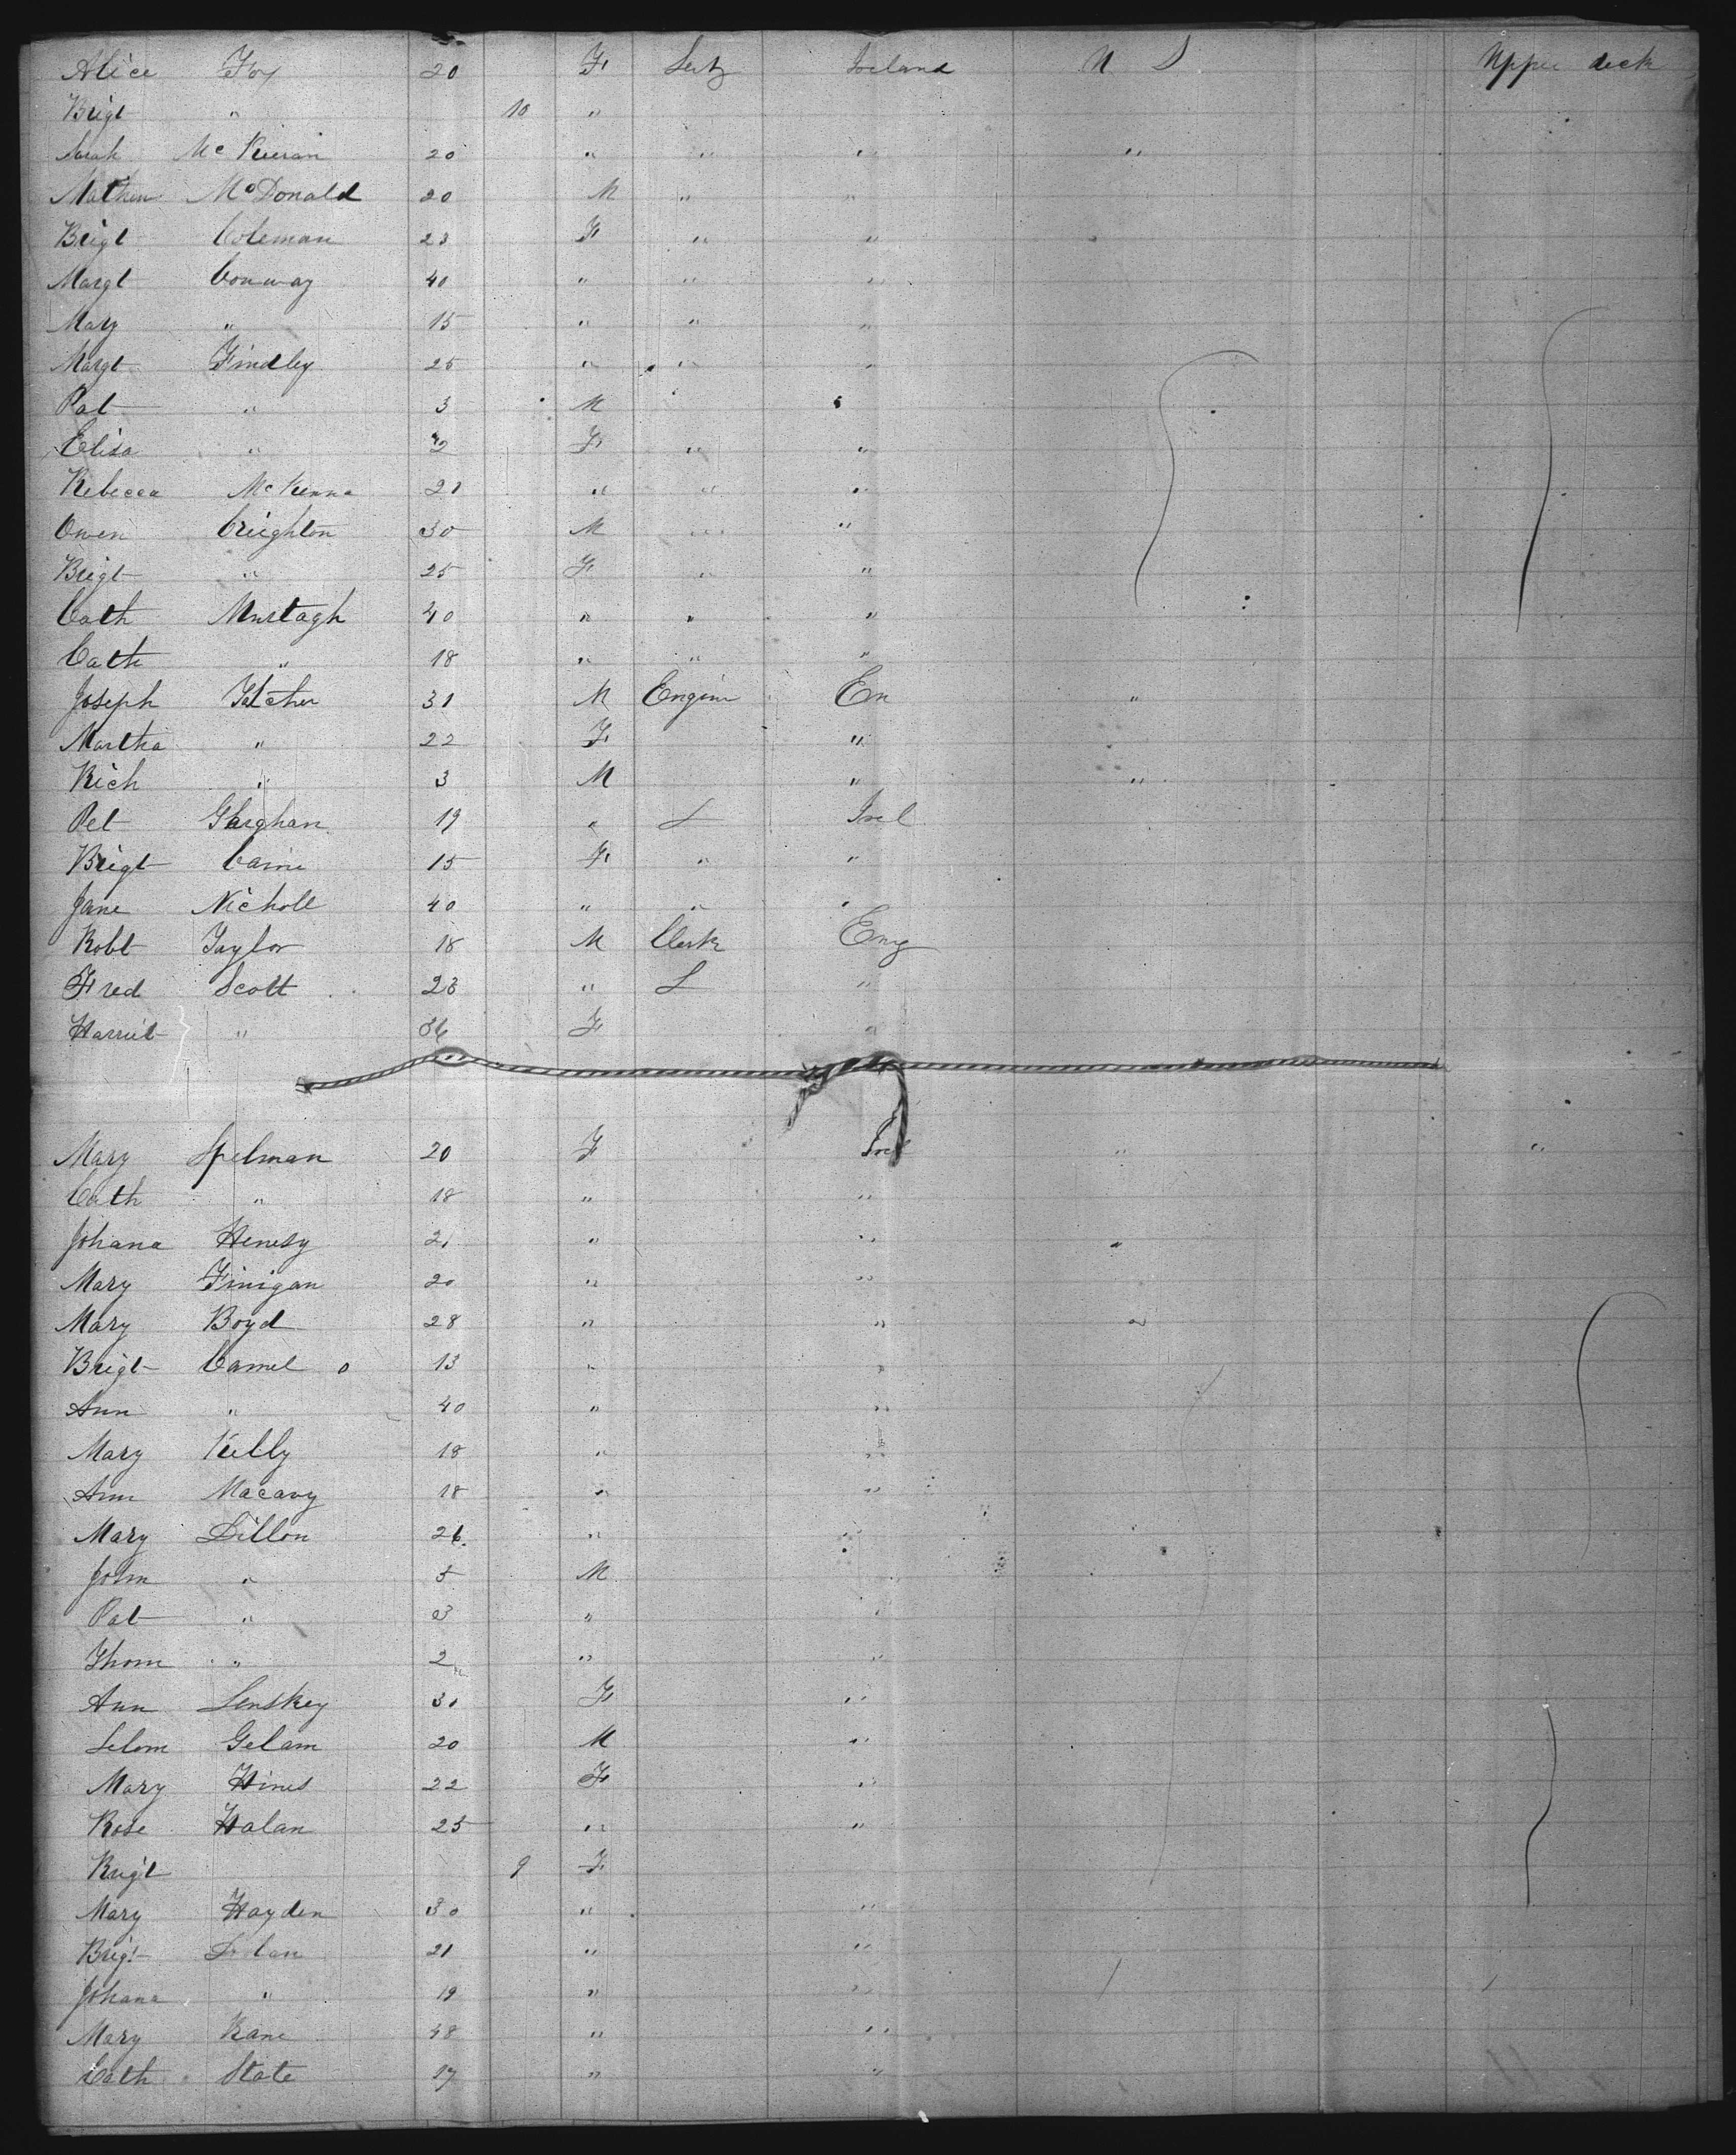 Alice Foy 20 F Ireland U S Upper deck
Brigt " 10 "
Sarah Mc Kiernan 20 " " " "
Mathew McDonald 20 M " "
Brigt Coleman 23 F " "
Margt Conway 40 " " "
Mary " 15 " " "
Margt Findley 25 " " "
Pat " 3 M "
Elisa " 2 F " "
Rebecca McKenna 21 " " "
Owen Creighton 30 M " "
Brigt " 25 F " "
Cath Murtagh 40 " " "
Cath " 18 " " "
Joseph 31 M Engine En "
Martha " 22 F "
Rich " 3 M " "
Pet Garghan 19 " L Irel
Brigt 15 F " "
Jane Nicholl 40 " " "
Robt Taylor 18 M Clerk Eng
Fred Scott 23 " L "
Harriet " 36 F "
Mary Spelman 20 F Irel " "
Cath " 18 " "
Johana Henesy 21 " " "
Mary Finigan 20 " "
Mary Boyd 28 " " "
Brigt Camel 13 " "
Ann " 40 " "
Mary Kelly 18 " "
Ann Macavy 18 " "
Mary Dillon 26 " "
John " 5 M "
Pat " 3 " "
Thom " 2 " "
Ann Lenskey 30 F "
Gelam 20 M "
Mary Hines 22 F "
Rose Halan 25 " "
Brigt 9 F
Mary Hayden 30 " "
Brigt 21 " "
Johana " 19 " "
Mary Kane 48 " "
Cath State 17 " "